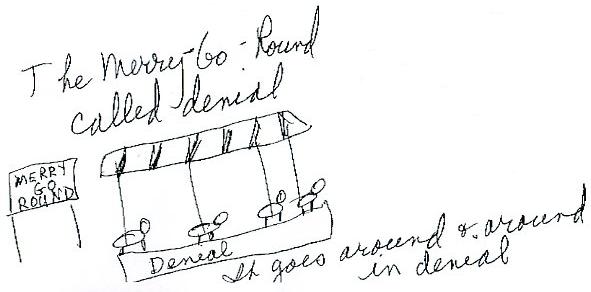 The Merry-Go-Round
called denial
MERRY
GO
ROUND
Denial
It goes around & around
in denial